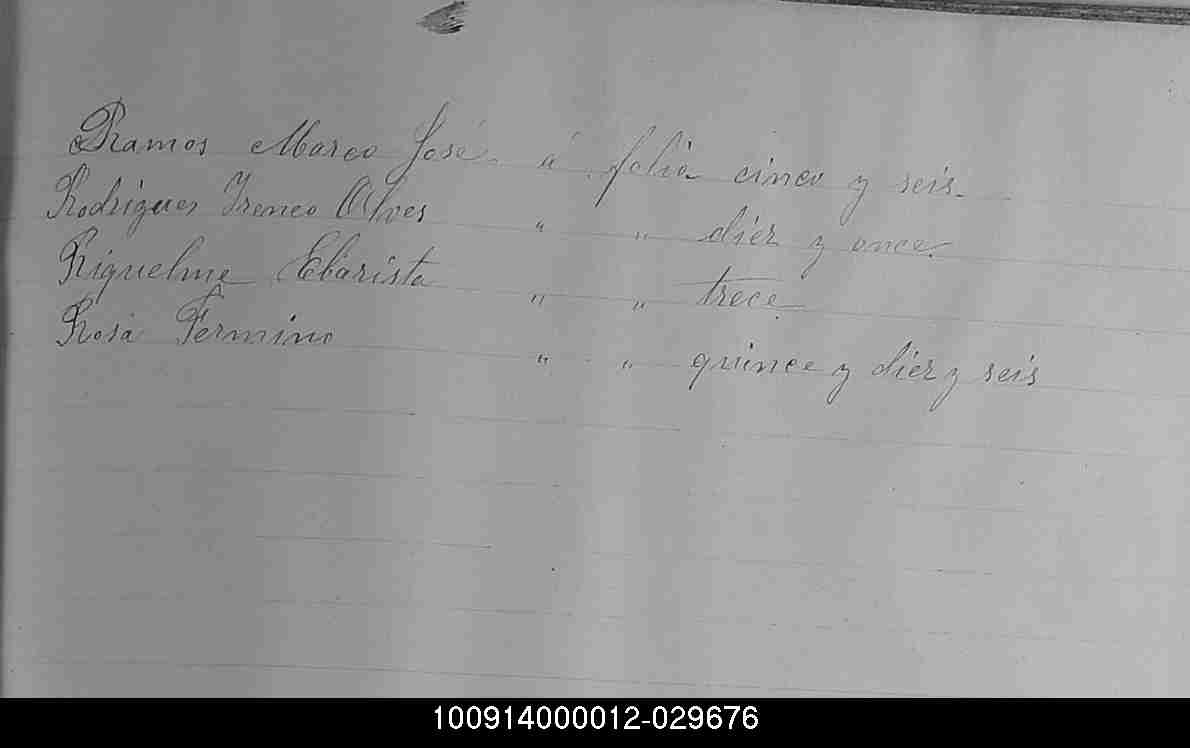 Ramos Marco José á folio cinco y seis.
Rodrigues Ireneo Alves " " diez y once.
Riquelme Ebarista " " trece
Rosa Fermino " " quince y diez y seis
100914000012-029676